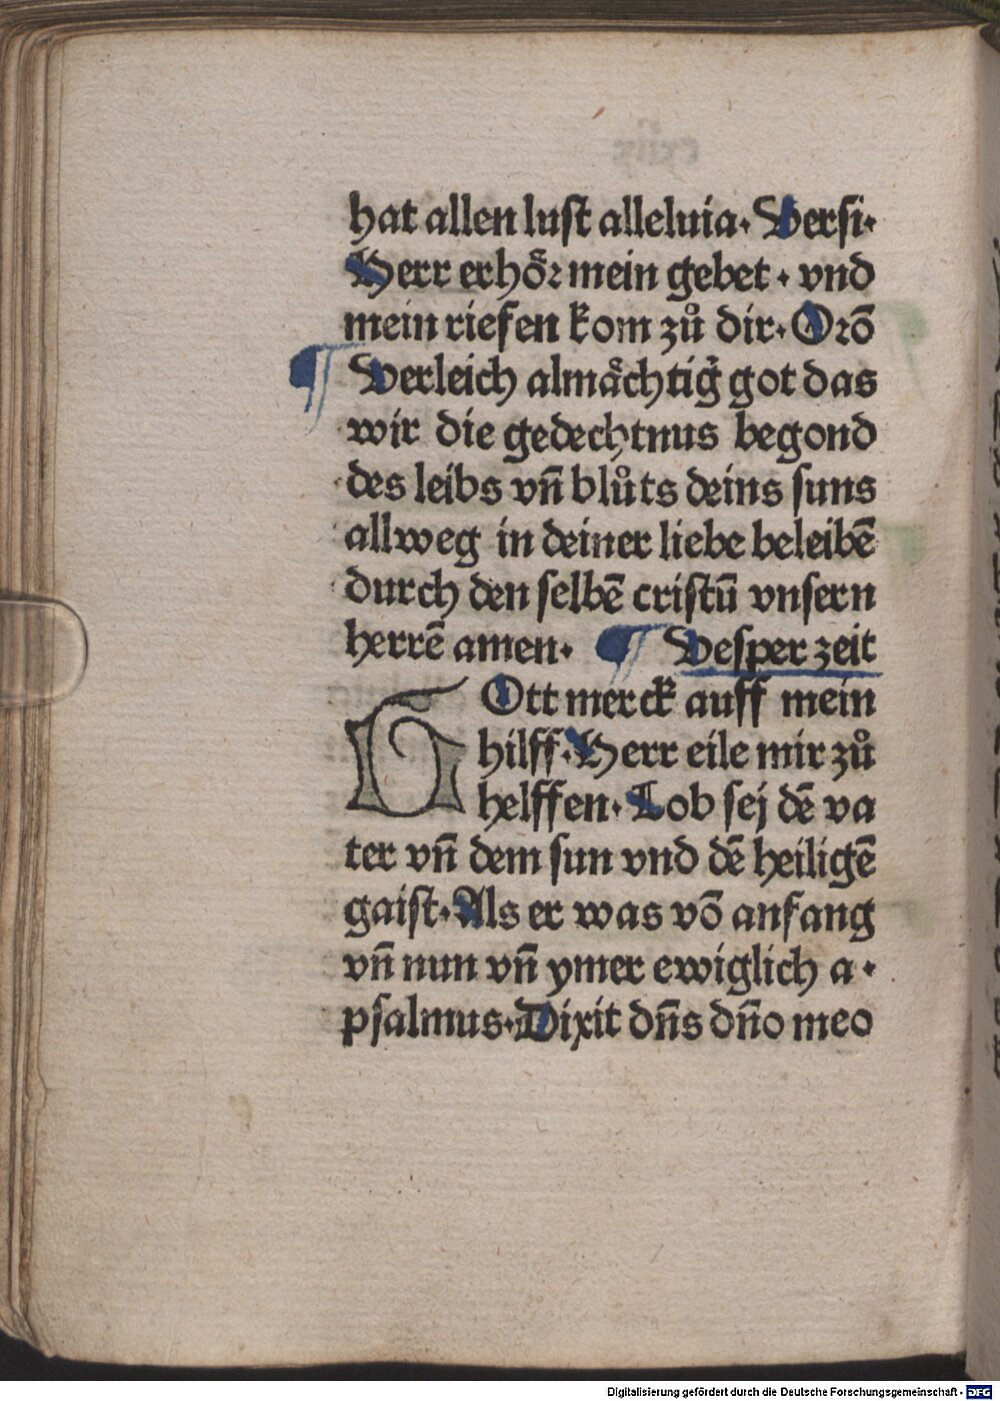 hat allen lust alleluia· Versi·
Herr erhoͤꝛ mein gebet · vnd
mein riefen kom zů dir· Oꝛō
¶ Verleich almaͤchtig̃ got das
wir die gedechtnus begond
des leibs vn̄ blůts deins suns
allweg in deiner liebe beleibē
durch den selbē cristū vnsern
herrē amen· ¶ Vesper zeit
GOtt merck auff mein
hilff· Herr eile mir zů
helffen· Lob sej dē va
ter vn̄ dem sun vnd dē heiligē
gaist· Als er was vō anfang
vn̄ nun vn̄ ymer ewiglich a·
psalmus· Dixit dn̄s dn̄o meo
Digitalisierung gefördert durch die Deutsche Forschungsgemeinschaft - DFG